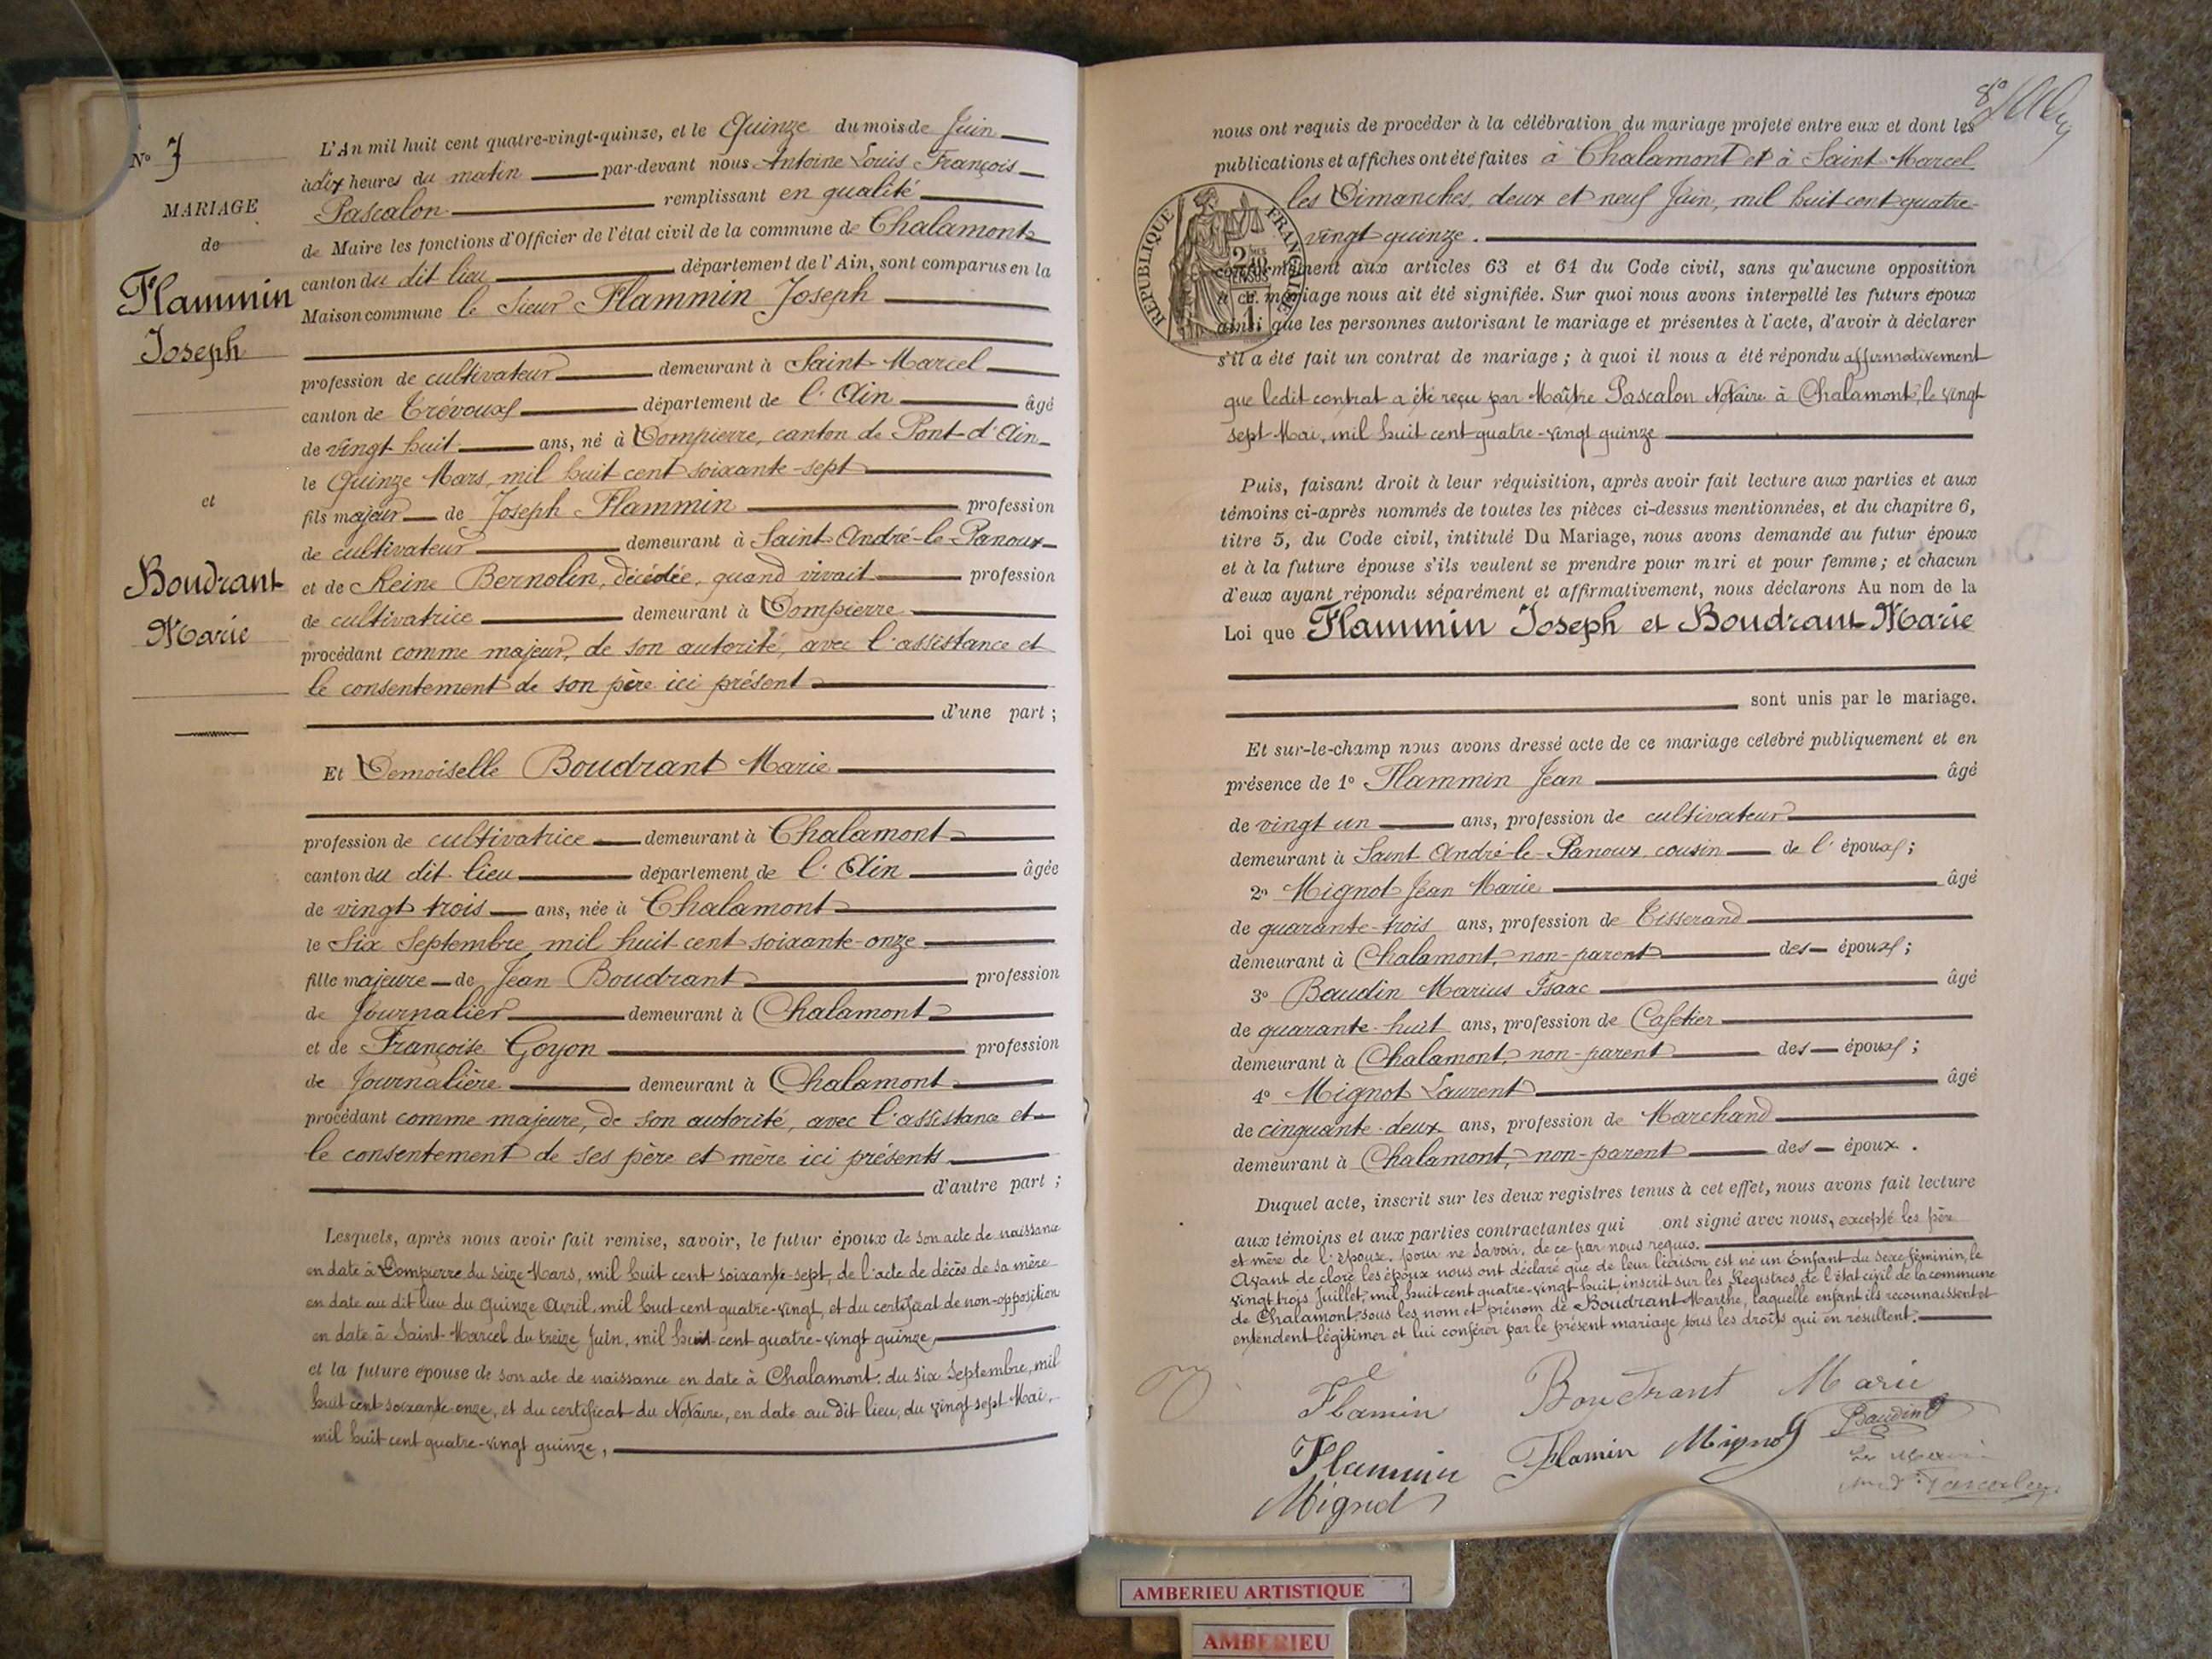 No 7
MARIAGE
de
Flammin
Joseph
et
Boudrant
Marie
L'An mil huit cent quatre-vingt-quinze, et le Quinze du mois de Juin
à dix heures du matin par-devant nous Antoine Louis François
Pascalon remplissant en qualité
de Maire les fonctions d'Officier de l'état civil de la commune de Chalamont
canton du dit lieu département de l'Ain, sont comparus en la
Maison commune le Sieur Flammin Joseph
profession de cultivateur demeurant à Saint-Marcel
canton de Trévoux département de l'Ain âgé
de vingt huit ans, né à Dompierre, canton de Pont-d'Ain
le Quinze Mars, mil huit cent soixante-sept
fils majeur de Joseph Flammin profession
de cultivateur demeurant à Saint-André-le-Panoux
et de Reine Bernolin, décédée, quand vivait profession
de cultivatrice demeurant à Dompierre
procédant comme majeur, de son autorité, avec l'assistance et
le consentement de son père ici présent
d'une part ;
Et Demoiselle Boudrant Marie
profession de cultivatrice demeurant à Chalamont
canton du dit lieu département de l'Ain âgée
de vingt trois ans, née à Chalamont
le Six Septembre mil huit cent soixante-onze
fille majeure de Jean Boudrant profession
de Journalier demeurant à Chalamont
et de Françoise Goyon profession
de Journalière demeurant à Chalamont
procédant comme majeure, de son autorité, avec l'assistance et
le consentement de ses père et mère ici présents
d'autre part ;
Lesquels, après nous avoir fait remise, savoir, le futur époux de son acte de naissance
en date à Dompierre du seize Mars, mil huit cent soixante-sept, de l'acte de décès de sa mère
en date au dit lieu du quinze Avril, mil huit cent quatre-vingt, et du certificat de non-opposition
en date à Saint-Marcel du treize Juin, mil huit cent quatre-vingt quinze,
et la future épouse de son acte de naissance en date à Chalamont, du six Septembre, mil
huit cent soixante onze, et du certificat du Notaire, en date au dit lieu, du vingt sept Mai,
mil huit cent quatre-vingt quinze,
nous ont requis de procéder à la célébration du mariage projeté entre eux et dont les
publications et affiches ont été faites à Chalamont et à Saint-Marcel
les Dimanches, deux et neuf Juin, mil huit cent quatre-
vingt quinze.
RÉPUBLIQUE FRANÇAISE
conformément aux articles 63 et 64 du Code civil, sans qu'aucune opposition
à ce mariage nous ait été signifiée. Sur quoi nous avons interpellé les futurs époux
ainsi que les personnes autorisant le mariage et présentes à l'acte, d'avoir à déclarer
s'il a été fait un contrat de mariage ; à quoi il nous a été répondu affirmativement
que ledit contrat a été reçu par Maître Pascalon Notaire à Chalamont, le vingt
sept Mai, mil huit cent quatre-vingt quinze
Puis, faisant droit à leur réquisition, après avoir fait lecture aux parties et aux
témoins ci-après nommés de toutes les pièces ci-dessus mentionnées, et du chapitre 6,
titre 5, du Code civil, intitulé Du Mariage, nous avons demandé au futur époux
et à la future épouse s'ils veulent se prendre pour mari et pour femme ; et chacun
d'eux ayant répondu séparément et affirmativement, nous déclarons Au nom de la
Loi que Flammin Joseph et Boudrant Marie
sont unis par le mariage.
Et sur-le-champ nous avons dressé acte de ce mariage célébré publiquement et en
présence de 1° Flammin Jean âgé
de vingt un ans, profession de cultivateur
demeurant à Saint André-le-Panoux, cousin de l'époux ;
2° Mignot Jean Marie âgé
de quarante-trois ans, profession de Tisserand
demeurant à Chalamont, non-parent des époux ;
3° Baudin Marius Isaac âgé
de quarante-huit ans, profession de Cafetier
demeurant à Chalamont, non-parent des époux ;
4° Mignot Laurent âgé
de cinquante-deux ans, profession de Marchand
demeurant à Chalamont, non-parent des époux.
Duquel acte, inscrit sur les deux registres tenus à cet effet, nous avons fait lecture
aux témoins et aux parties contractantes qui ont signé avec nous, excepté les père
et mère de l'épouse, pour ne savoir, de ce par nous requis.
Avant de clore les époux nous ont déclaré que de leur liaison est né un Enfant du sexe féminin, le
vingt trois Juillet, mil huit cent quatre-vingt-huit, inscrit sur les Registres de l'état civil de la commune
de Chalamont, sous les nom et prénom de Boudrant Marthe, laquelle enfant ils reconnaissent et
entendent légitimer et lui conférer par le présent mariage tous les droits qui en résultent.
Flamin Boudrant Marie
Flammin Flamin Mignot Baudin
Mignot
Le Maire
Pascalon
AMBERIEU ARTISTIQUE
AMBERIEU